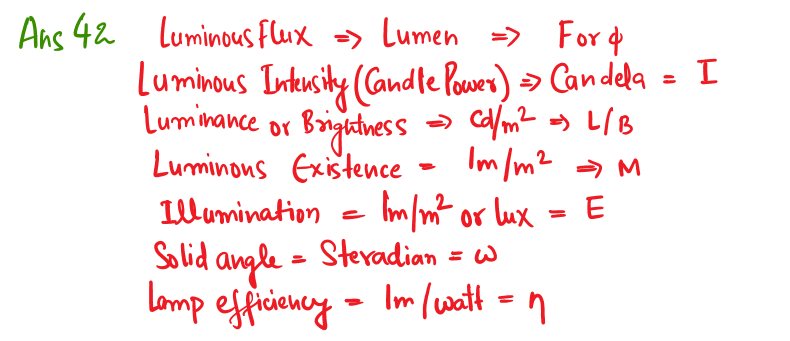 Ans 42 Luminous Flux => Lumen => F or ϕ
Luminous Intensity (Candle Power) => Candela = I
Luminance or Brightness => Cd/m² => L/B
Luminous Existence - lm/m² => M
Illumination = lm/m² or lux = E
Solid angle = Steradian = ω
Lamp efficiency - lm/watt = η